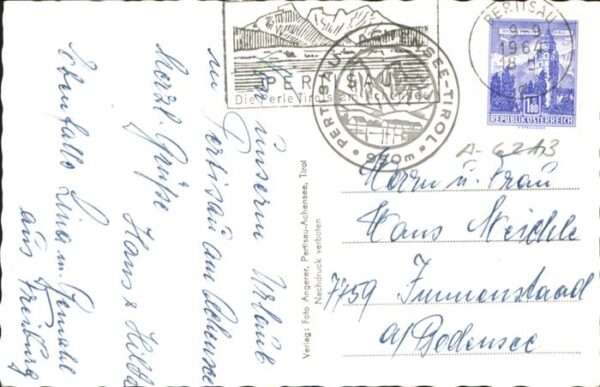 PERTISAU
Die Perle Tirols am Achensee
PERTISAU-ACHENSEE-TIROL
970 m
PERTISAU
9-9
1964
18
1.80
REPUBLIK ÖSTERREICH
A-6213
Herrn u. Frau
Hans Meichle
7759 Immenstaad
a/Bodensee
Aus unserm Urlaub
in Pertisau am Achensee
Herzl. Grüße
Hans & Hilde
Ebenfalls Lina m. Gemahl
aus Freiburg
Verlag: Foto Angerer, Pertisau-Achensee, Tirol
Nachdruck verboten